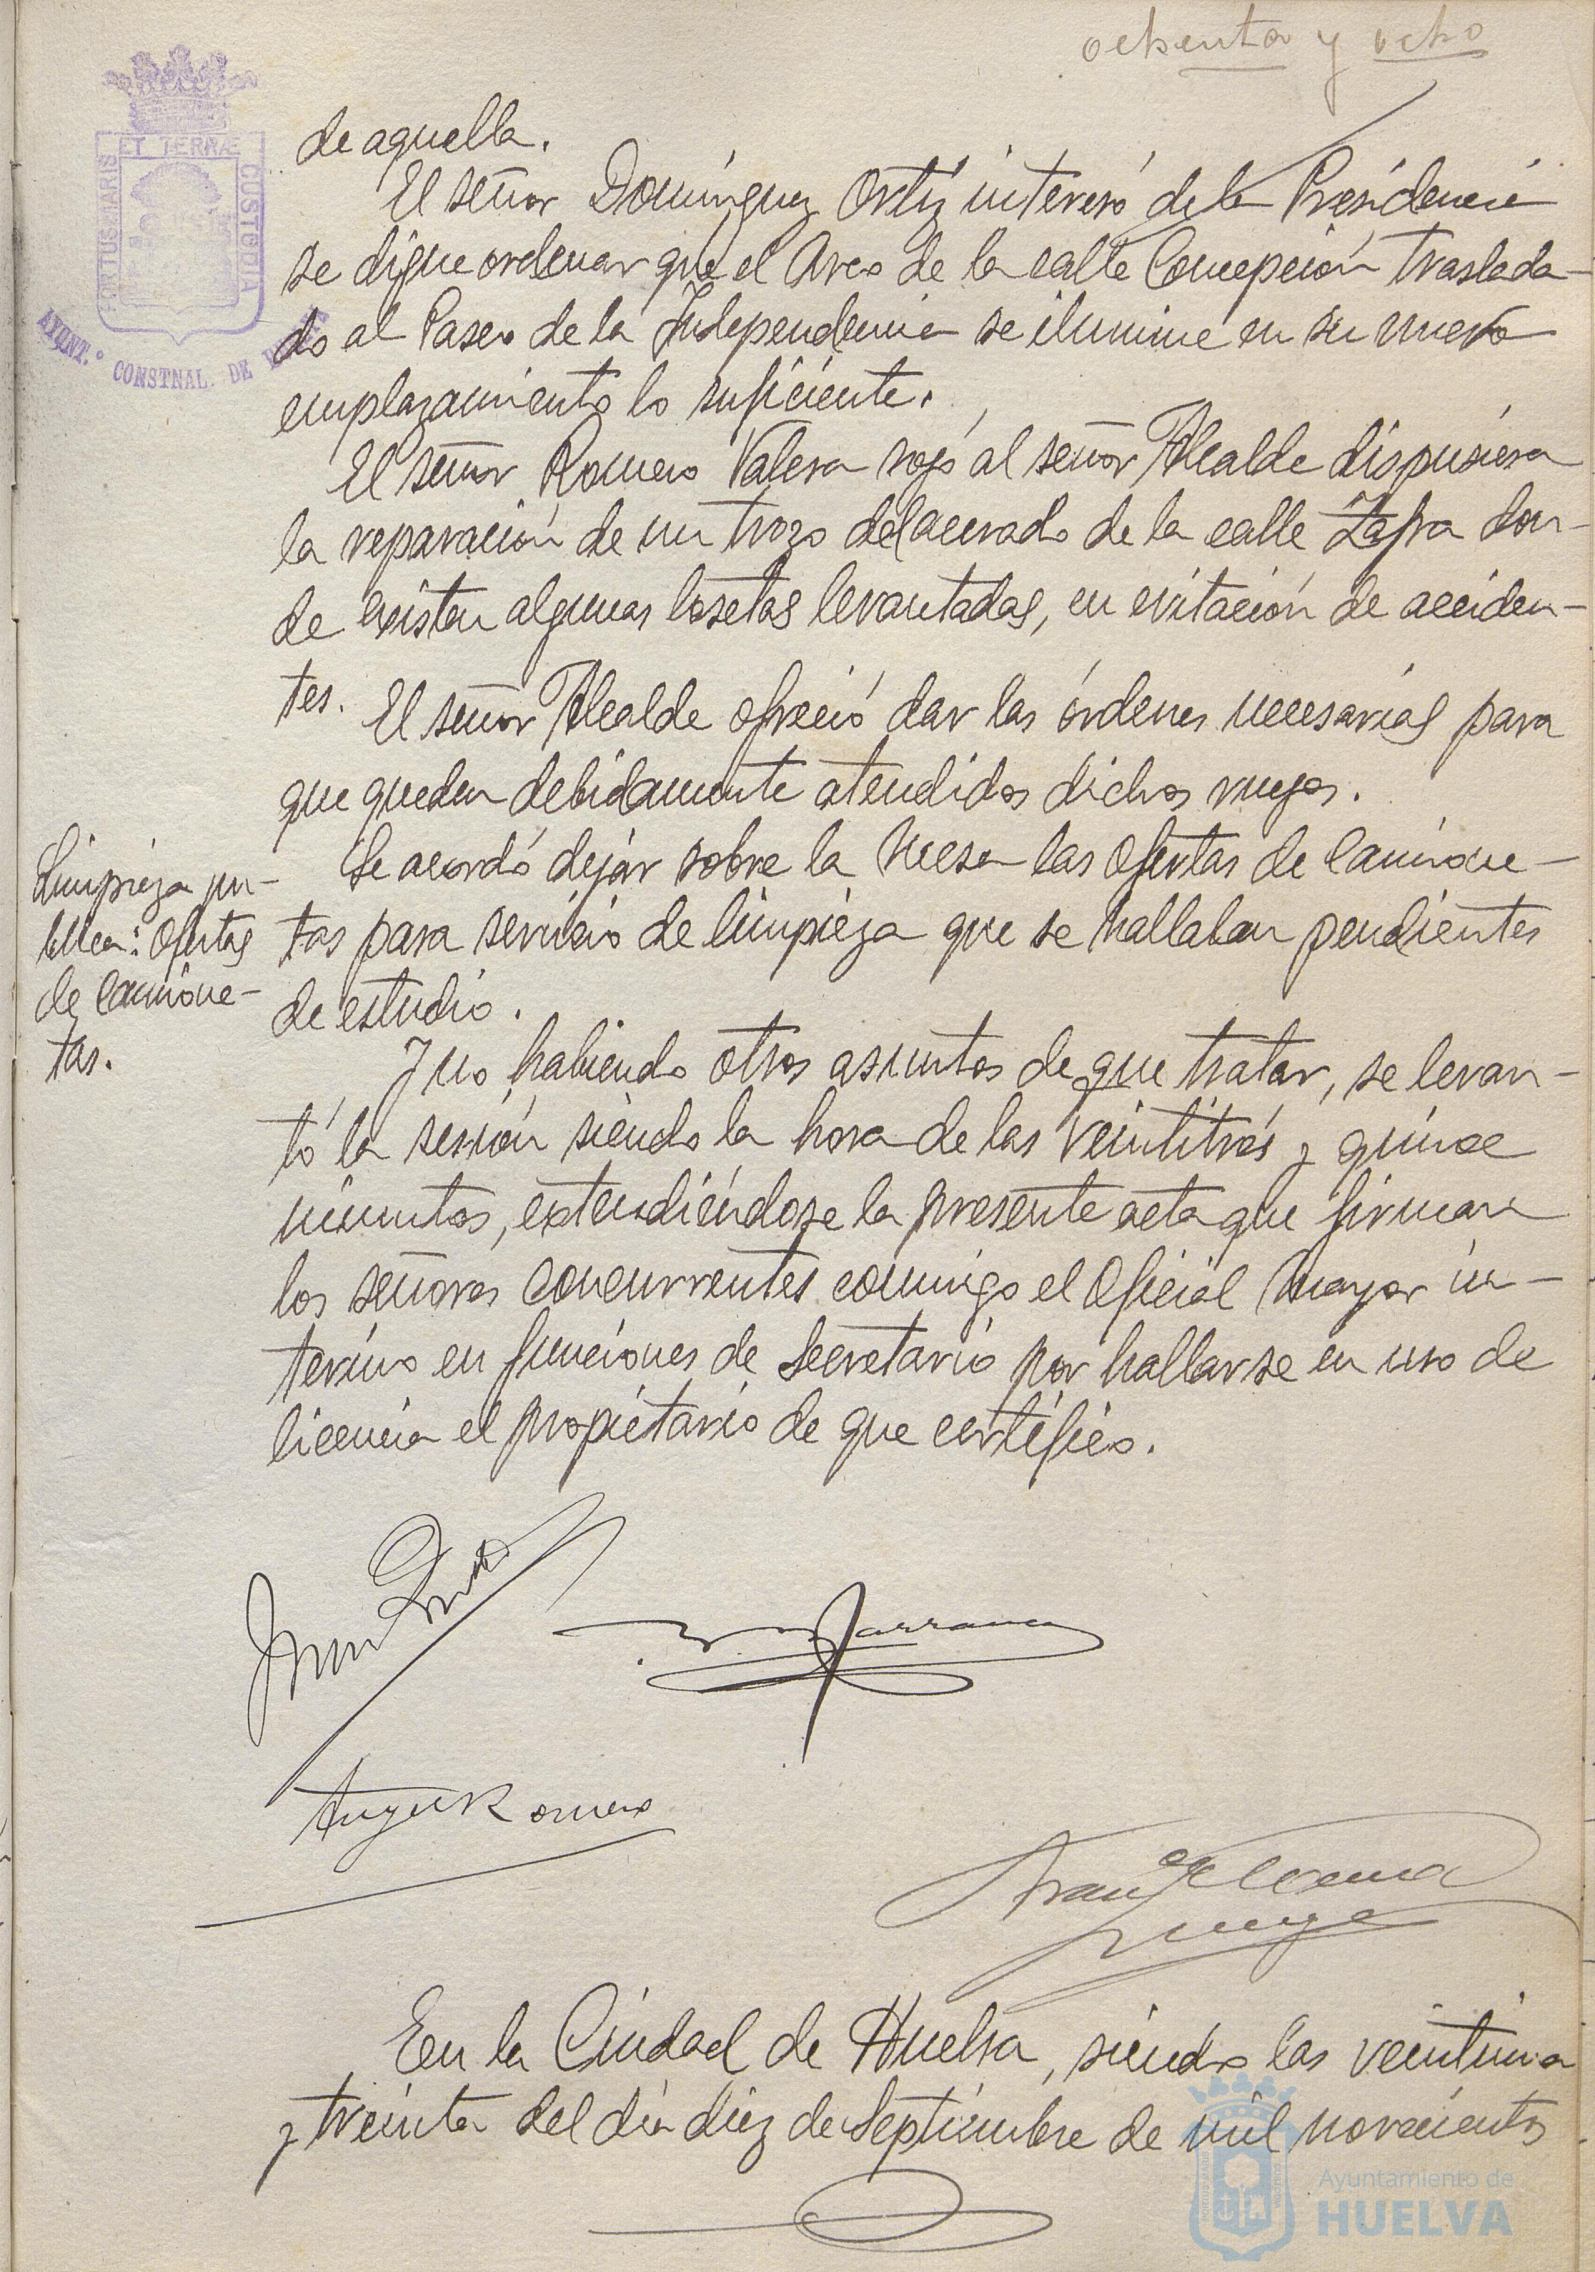 ochenta y ocho
PORTUS MARIS ET TERRÆ CUSTODIA
AYUNT.º CONSTNAL. DE
de aquella.
El señor Domínguez Ortiz interesó de la Presidencia
se digne ordenar que el Arco de la calle Concepción traslada-
do al Paseo de la Independencia se ilumine en su nuevo
emplazamiento lo suficiente.
El señor Romero Valera rogó al señor Alcalde dispusiera
la reparación de un trozo del acerado de la calle Zafra don-
de existen algunas losetas levantadas, en evitación de acciden-
tes.
El señor Alcalde ofreció dar las órdenes necesarias para
que queden debidamente atendidos dichos ruegos.
Limpieza pú-
blica: Ofertas
de camione-
tas.
Se acordó dejar sobre la mesa las ofertas de camione-
tas para servicio de limpieza que se hallaban pendientes
de estudio.
Y no habiendo otros asuntos de que tratar, se levan-
tó la sesión siendo la hora de las veintitrés y quince
minutos, extendiéndose la presente acta que firman
los señores concurrentes conmigo el Oficial Mayor in-
terino en funciones de Secretario por hallarse en uso de
licencia el propietario de que certifico.
Barranca
Romero
En la Ciudad de Huelva, siendo las veintiuna
y treinta del día diez de Septiembre de mil novecientos
Ayuntamiento de
HUELVA